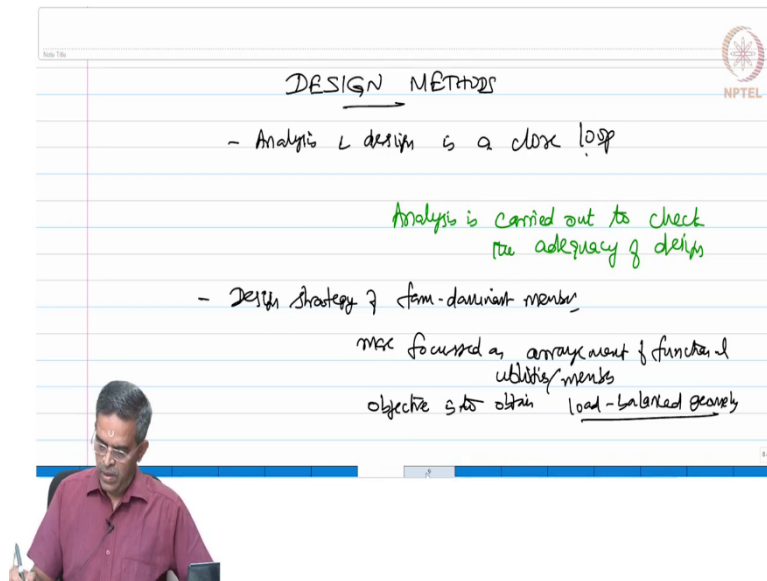 Note Title
NPTEL
DESIGN METHODS
- Analysis & design is a close loop
Analysis is carried out to check
the adequacy of design
- Design strategy of form-dominant member
more focussed on arrangement of functional
utilities/members
objective is to obtain load-balanced geometry